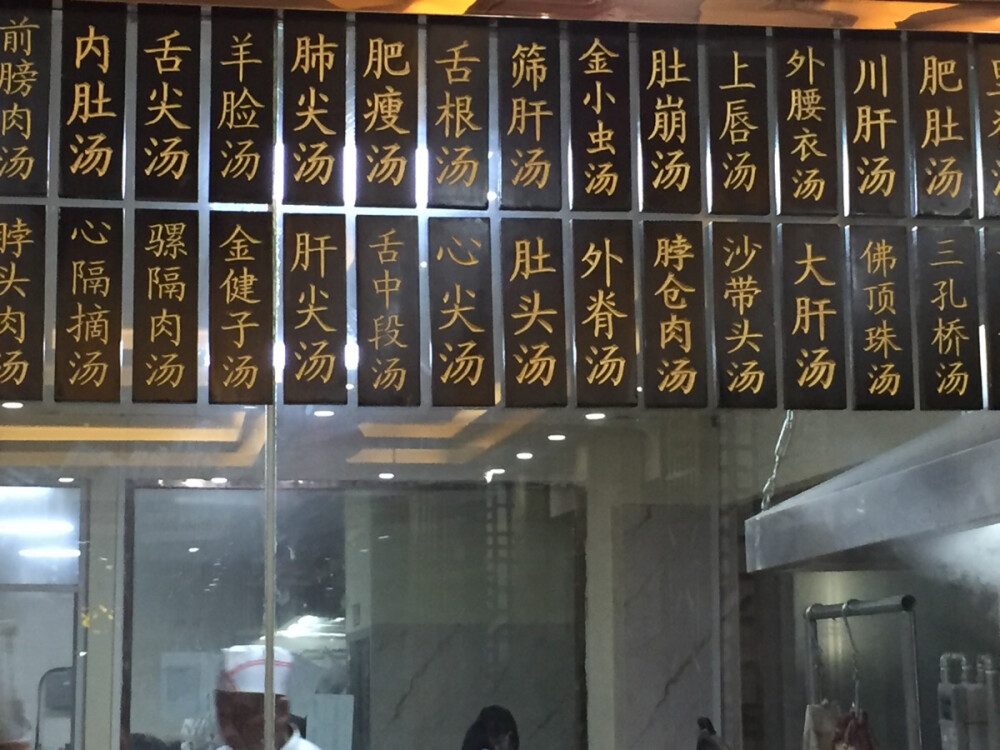 前膀肉汤
内肚汤
舌尖汤
羊脸汤
肺尖汤
肥瘦汤
舌根汤
筛肝汤
金小虫汤
肚崩汤
上唇汤
外腰衣汤
川肝汤
肥肚汤
脖头肉汤
心隔摘汤
骡隔肉汤
金健子汤
肝尖汤
舌中段汤
心尖汤
肚头汤
外脊汤
脖仓肉汤
沙带头汤
大肝汤
佛顶珠汤
三孔桥汤